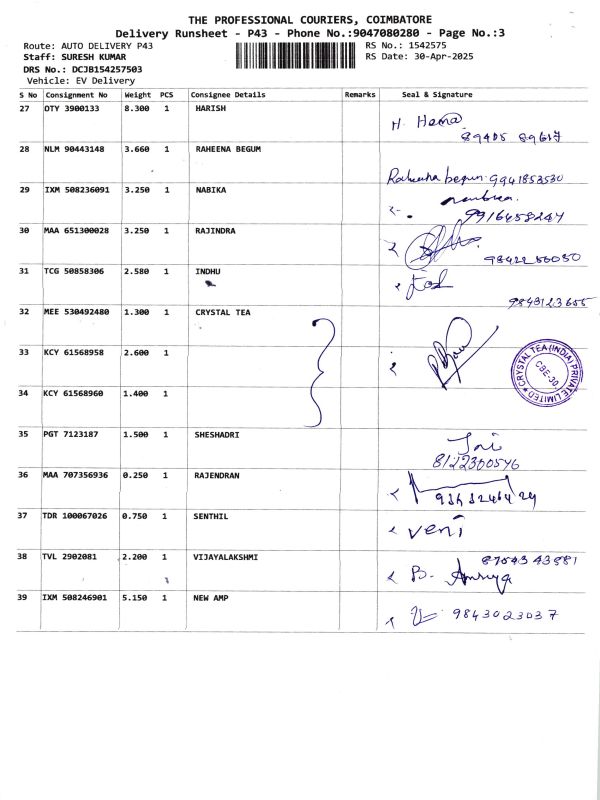 THE PROFESSIONAL COURIERS, COIMBATORE
Delivery Runsheet - P43 - Phone No.:9047080280 - Page No.:3
Route: AUTO DELIVERY P43 RS No.: 1542575
Staff: SURESH KUMAR RS Date: 30-Apr-2025
DRS No.: DCJB154257503
Vehicle: EV Delivery
S No Consignment No Weight PCS Consignee Details Remarks Seal & Signature
27 OTY 3900133 8.300 1 HARISH
H. Hema
28 NLM 90443148 3.660 1 RAHEENA BEGUM
Raheena begum. 9941853530
29 IXM 508236091 3.250 1 NABIKA
9916458247
30 MAA 651300028 3.250 1 RAJINDRA
31 TCG 50858306 2.580 1 INDHU
9843123655
32 MEE 530492480 1.300 1 CRYSTAL TEA
33 KCY 61568958 2.600 1
CRYSTAL TEA (INDIA) PRIVATE LIMITED
CBE-30.
34 KCY 61568960 1.400 1
35 PGT 7123187 1.500 1 SHESHADRI
Jai
8122300546
36 MAA 707356936 0.250 1 RAJENDRAN
37 TDR 100067026 0.750 1 SENTHIL
veni
38 TVL 2902081 2.200 1 VIJAYALAKSHMI
B.
39 IXM 508246901 5.150 1 NEW AMP
9843023037